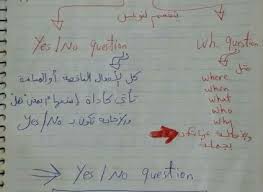 Yes/No question
Wh. question
مثل
كل الأفعال الناقصة أو المساعدة
where
تأتي كأداة استفهام بمعنى هل
when
what
والإجابة تكون بـ Yes/No
who
why
والإجابة
بجملة
Yes/No question